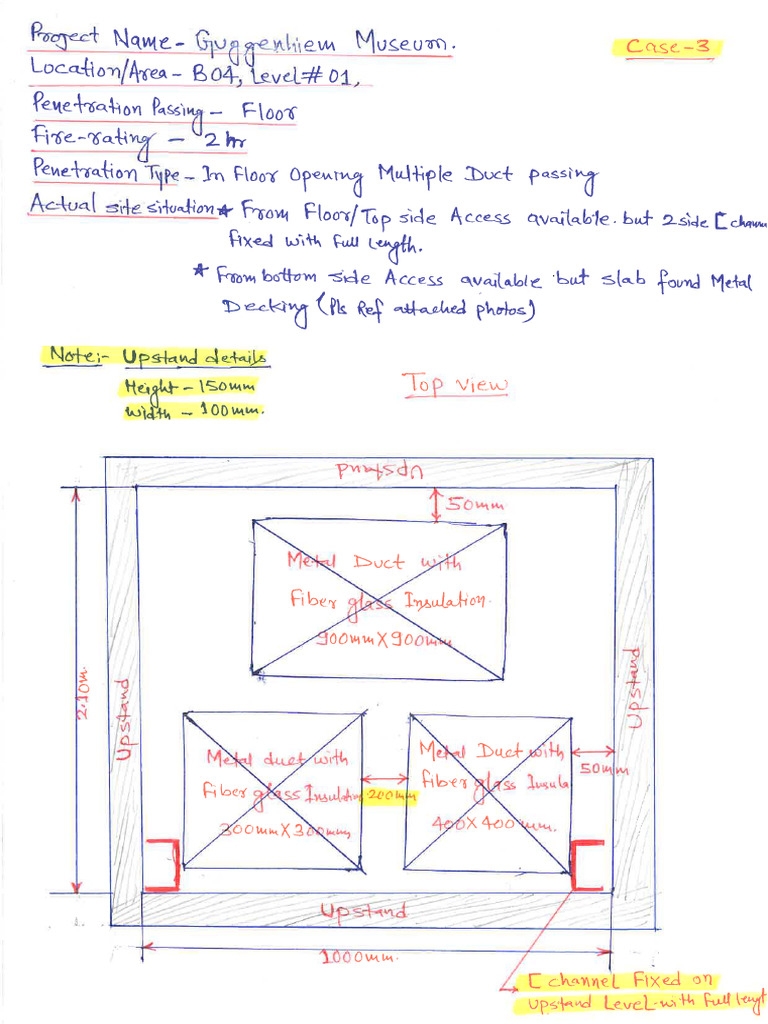 Project Name - Guggenhiem Museum.
Case-3
Location/Area - B04, Level# 01,
Penetration Passing - Floor
Fire-rating - 2 hr
Penetration Type - In Floor Opening Multiple Duct passing
Actual site situation * From Floor/Top side Access available. but 2 side [ chann
fixed with full length.
* From bottom side Access available but slab found Metal
Decking (Pls Ref attached photos)
Note:- Upstand details
Height - 150mm
Width - 100mm.
Top view
Upstand
50mm
Metal Duct with
Fiber glass Insulation.
900mm X 900mm
2.10m.
Upstand
Upstand
Metal duct with
Fiber glass Insulation
300mm X 300mm
200mm
Metal Duct with
fiber glass Insula
400 X 400 mm.
50mm
Upstand
1000mm.
[ channel Fixed on
upstand Level. with full lengt